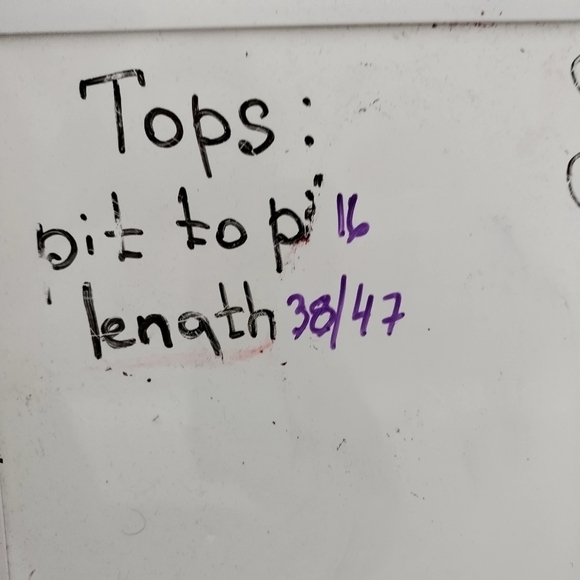 Tops:
pit to pi 16
length 38/47